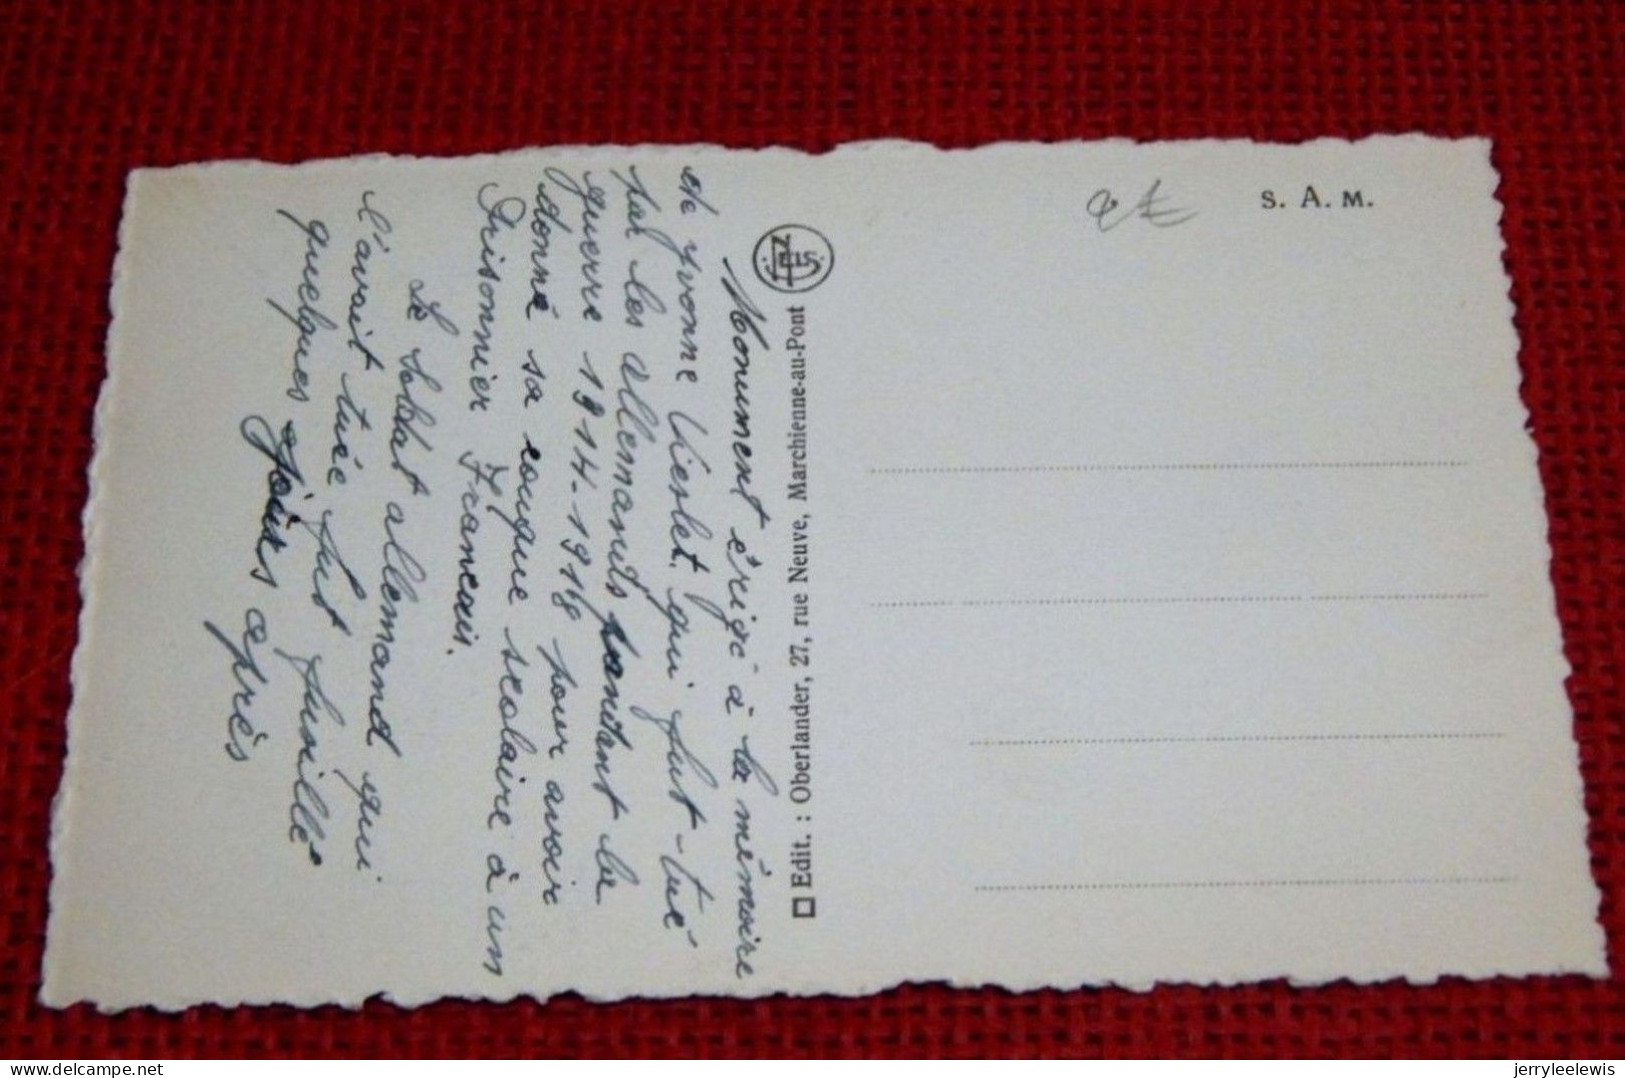 Monument érigé à la mémoire
de Yvonne Vieslet. qui fut-tué
par les allemands pandant la
guerre 1914-1918 pour avoir
donné sa couque scolaire à un
Prisonnier Français.
Le Soldat allemand qui
l'avait tuée fut fusillé
quelques jours après
NELS
□ Edit. : Oberlander, 27, rue Neuve, Marchienne-au-Pont
S. A. M.
delcampe.net
jerryleelewis